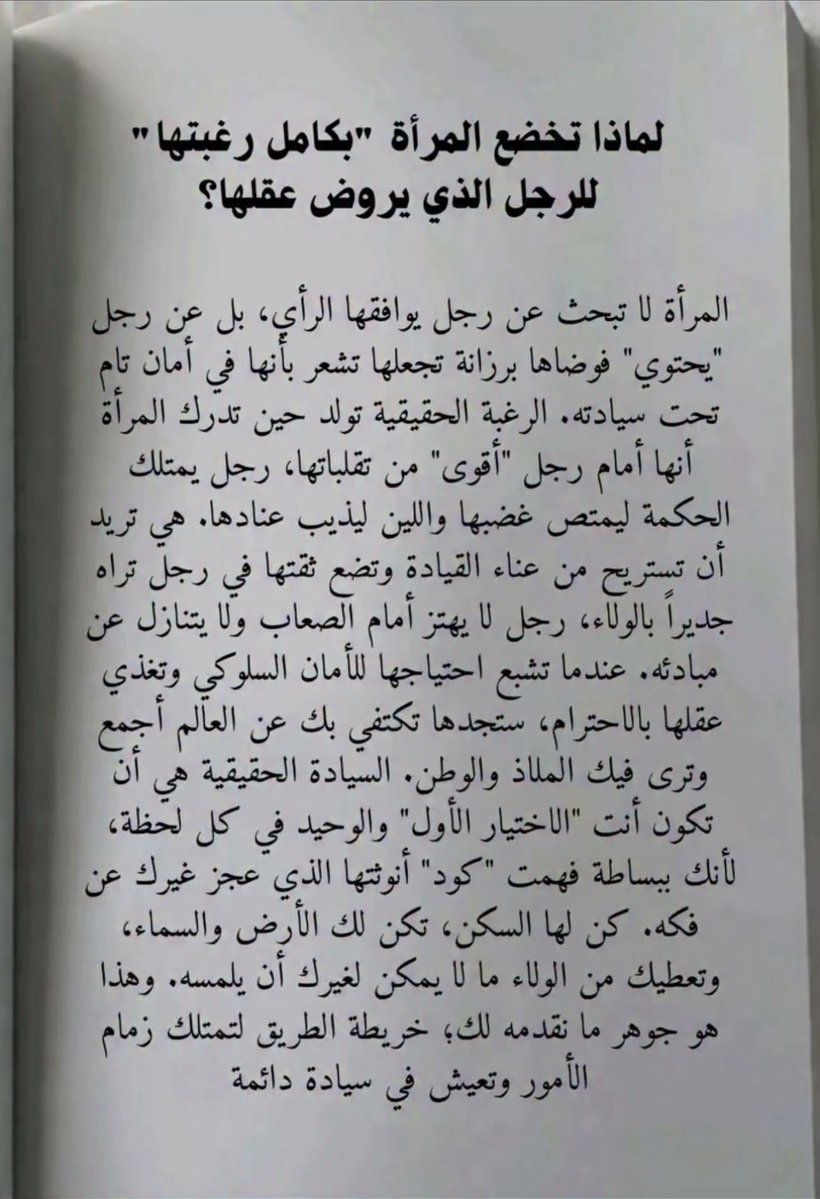 لماذا تخضع المرأة "بكامل رغبتها"
للرجل الذي يروض عقلها؟
المرأة لا تبحث عن رجل يوافقها الرأي، بل عن رجل
"يحتوي" فوضاها برزانة تجعلها تشعر بأنها في أمان تام
تحت سيادته. الرغبة الحقيقية تولد حين تدرك المرأة
أنها أمام رجل "أقوى" من تقلباتها، رجل يمتلك
الحكمة ليمتص غضبها واللين ليذيب عنادها. هي تريد
أن تستريح من عناء القيادة وتضع ثقتها في رجل تراه
جديراً بالولاء، رجل لا يهتز أمام الصعاب ولا يتنازل عن
مبادئه. عندما تشبع احتياجها للأمان السلوكي وتغذي
عقلها بالاحترام، ستجدها تكتفي بك عن العالم أجمع
وترى فيك الملاذ والوطن. السيادة الحقيقية هي أن
تكون أنت "الاختيار الأول" والوحيد في كل لحظة،
لأنك ببساطة فهمت "كود" أنوثتها الذي عجز غيرك عن
فكه. كن لها السكن، تكن لك الأرض والسماء،
وتعطيك من الولاء ما لا يمكن لغيرك أن يلمسه. وهذا
هو جوهر ما نقدمه لك؛ خريطة الطريق لتمتلك زمام
الأمور وتعيش في سيادة دائمة